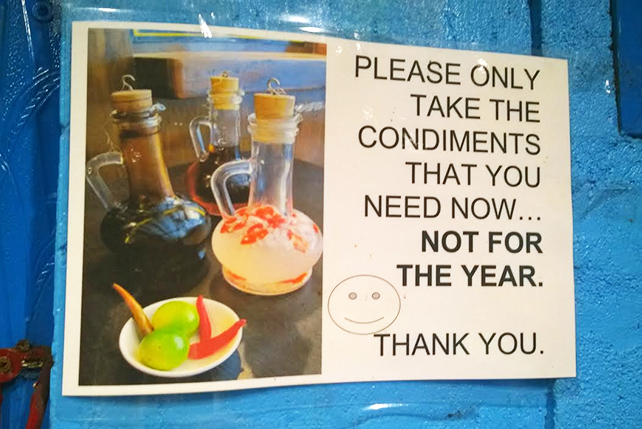 PLEASE ONLY
TAKE THE
CONDIMENTS
THAT YOU
NEED NOW...
NOT FOR
THE YEAR.
THANK YOU.